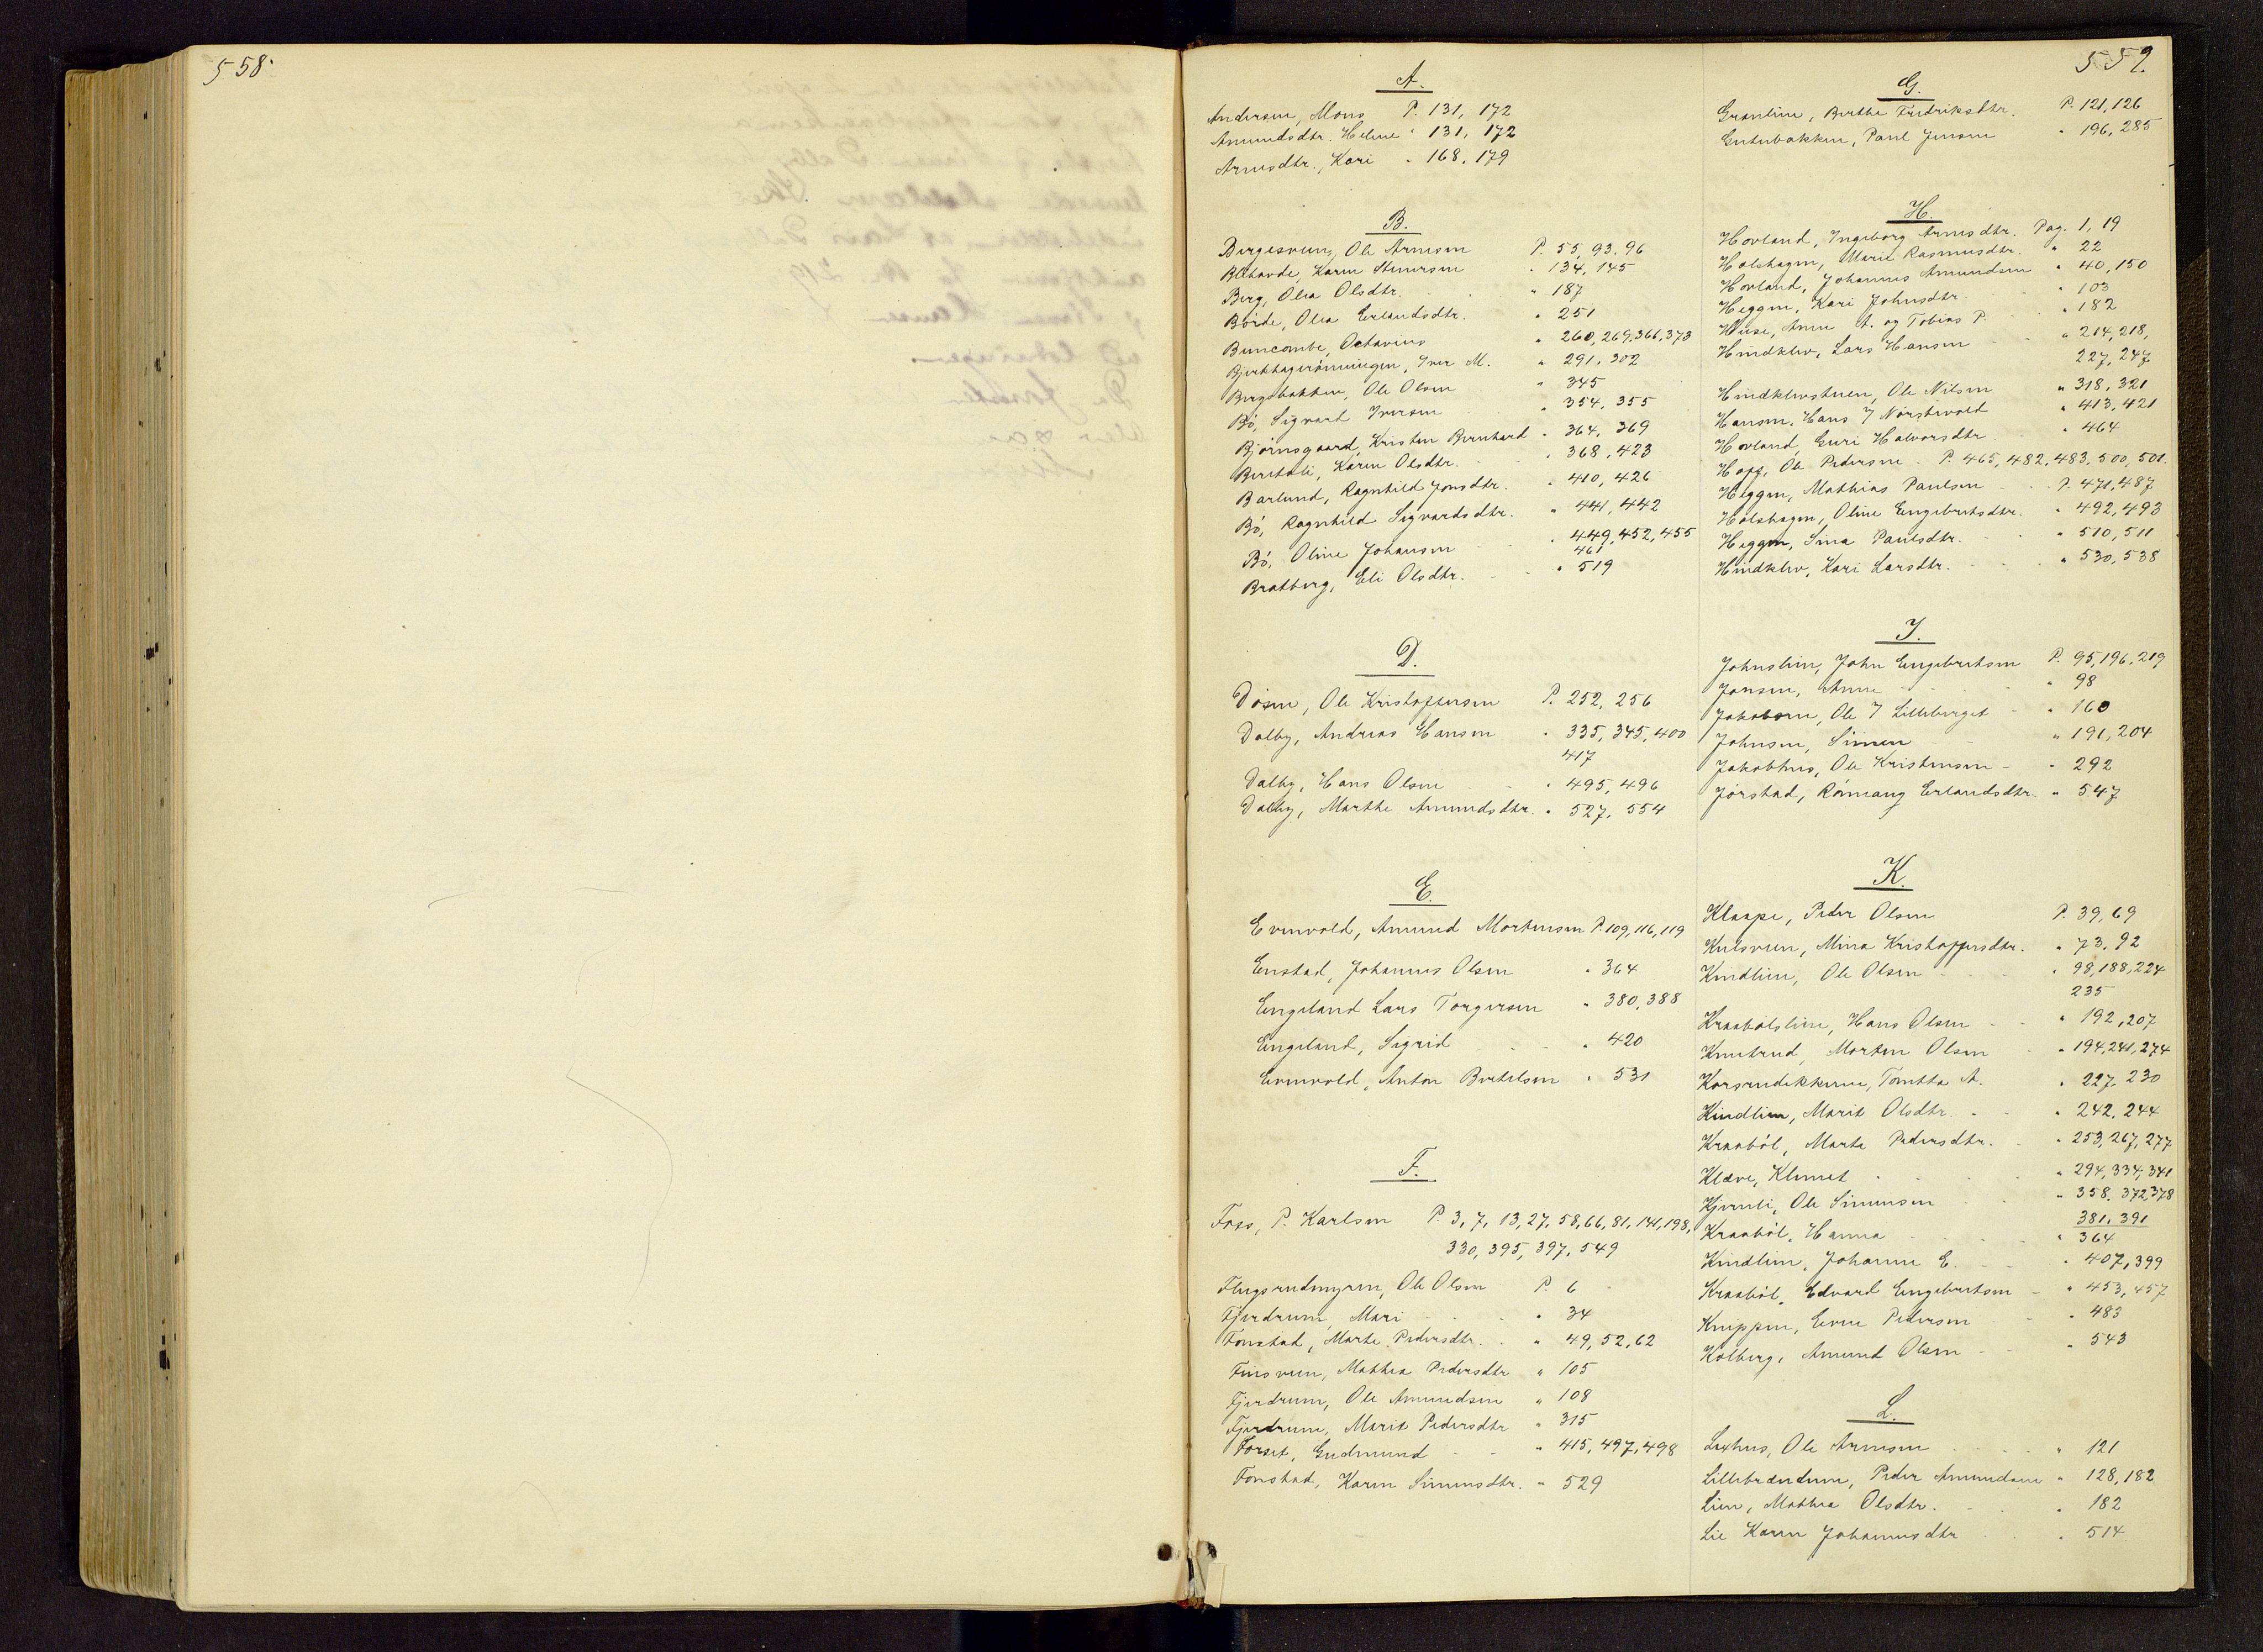 558
559.
A.
Andersen, Mons P. 131, 172
Amundsdtr. Helene " 131, 172
Arnesdtr., Kari " 168, 179
B.
Birgesveen, Ole Arnesen P. 55, 93, 96
Karen Stenersen " 134, 145
Berg, Olea Olsdtr. " 187
Börde, Olea Erlandsdtr. " 251
Buncombe, Octavius " 260, 269, 366, 373
Bjerkhagerönningen, Iver M. " 291, 302
Bergsbakken, Ole Olsen " 345
Bö, Sigvart Iversen " 354, 355
Björnsgaard, Kristen Bernhard " 364, 369
Karen Olsdtr. " 368, 423
Barlund, Ragnhild Jonsdtr. " 410, 426
Bö, Ragnhild Sigvardsdtr. " 441, 442
Bö, Oline Johansen " 449, 452, 455
461
Bratberg, Eli Olsdtr. " 519
D.
Dösen, Ole Kristoffersen P. 252, 256
Dalby, Andreas Hansen " 335, 345, 400
417
Dalby, Hans Olsen " 495, 496
Dalby, Marthe Amundsdtr. " 527, 554
E.
Evenvold, Amund Mortensen P. 109, 116, 119
Enstad, Johannes Olsen " 364
Engeland Lars Torgersen " 380, 388
Engeland, Sigrid " 420
Evenvold, Anton Bertelsen " 531
F.
Foss, P. Karlsen P. 3, 7, 13, 27, 58, 66, 81, 141, 198,
330, 395, 397, 549
Flugsrudmyren, Ole Olsen P. 6
Fjerdrum, Mari " 34
Fonstad, Marte Pedersdtr. " 49, 52, 62
Finsveen, Mathea Pedersdtr " 105
Fjerdrum, Ole Amundsen " 108
Fjerdrum, Marit Pedersdtr " 315
Forset, Gudmund " 415, 497, 498
Fonstad, Karen Simensdtr. " 529
G.
Grønlien, Berthe Fredriksdtr. P. 121, 126
Gutubakken, Paul Jensen " 196, 285
H.
Hovland, Ingeborg Arnesdtr. Pag. 1, 19
Holshagen, Marie Rasmusdtr. " 22
Hovland, Johannes Amundsen " 40, 150
Heggen, Kari Johnsdtr. " 103
Huse, Anne A. og Tobias P. " 182
Hindklev, Lars Hansen " 214, 218,
227, 247
Hindklevstuen, Ole Nilsen " 318, 321
Hansen, Hans 7 Nörstevold " 413, 421
Hovland, Guri Halvorsdtr. " 464
Hoff, Ole Pedersen P. 465, 482, 483, 500, 501.
Heggen, Mathias Paulsen P. 471, 487
Holshagen, Oline Engebretsdtr. " 492, 493
Heggen, Sina Paulsdtr. " 510, 511
Hindklev, Kari Larsdtr. " 530, 538
J.
Johnslien, John Engebretsen P. 95, 196, 219
Jonsen, Anne " 98
Jakobsen, Ole 7 Lilleberget " 160
Johnsen, Simen " 191, 204
Jakobhus, Ole Kristensen " 292
Jörstad, Rönnaug Erlandsdtr. " 547
K.
Klaape, Peder Olsen P. 39, 69
Kulsveen, Mina Kristoffersdtr. " 73, 92
Kindlien, Ole Olsen " 98, 188, 224
235
Kraabölslien, Hans Olsen " 192, 207
Knutrud, Morten Olsen " 194, 241, 274
Korsrudekkerne, Tomtta A. " 227, 230
Kindlien, Marit Olsdtr. " 242, 244
Kraaböl, Marte Pedersdtr. " 253, 267, 277
Klæve, Klemet " 294, 334, 341
Kjernli, Ole Simensen " 358, 372, 378
381, 391
Kraaböl, Hanna " 364
Kindlien, Johanne E. " 407, 399
Kraaböl, Edvard Engebretsen " 453, 457
Knippen, Even Pedersen " 483
Kolberg, Amund Olsen " 543
L.
Laxhus, Ole Arnesen " 121
Lillebrændum, Peder Amundsen " 128, 182
Lien, Mathea Olsdtr. " 182
Lie Karen Johannesdtr " 514